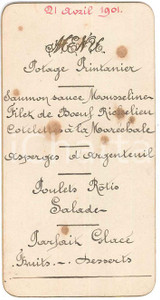 21 Avril 1901.
MENU
Potage Printanier
Saumon sauce Mousseline
Filet de Boeuf Richelieu
Cotelettes à la Maréchale
Asperges d'Argenteuil
Poulets Rôtis
Salade
Parfait Glacé
Fruits - Desserts